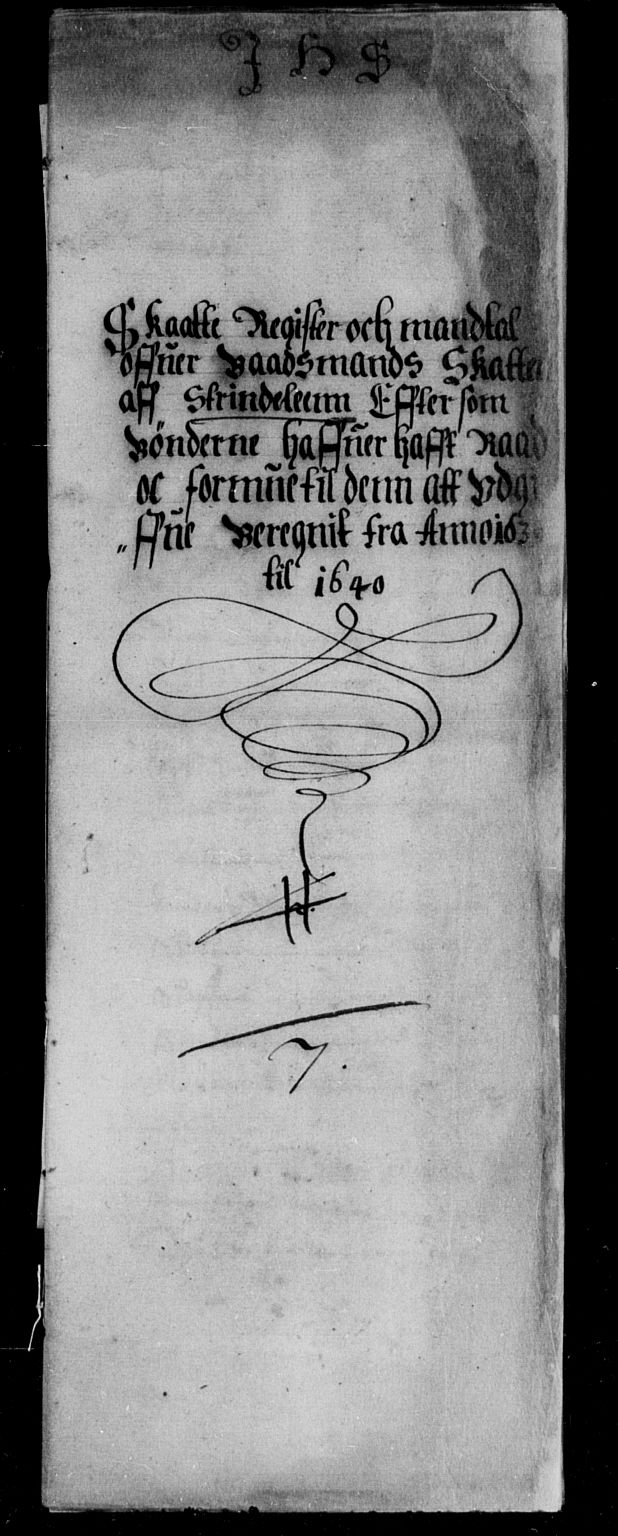 J H S
Skaatte Register och mandtal
offuer Baadsmands Skatten
aff Strindeleenn Effter som
Bønderne haffuer hafft Raad
oc formue til denn aff Vdgi
„ffue Beregnit fra Anno 163
til 1640
7.